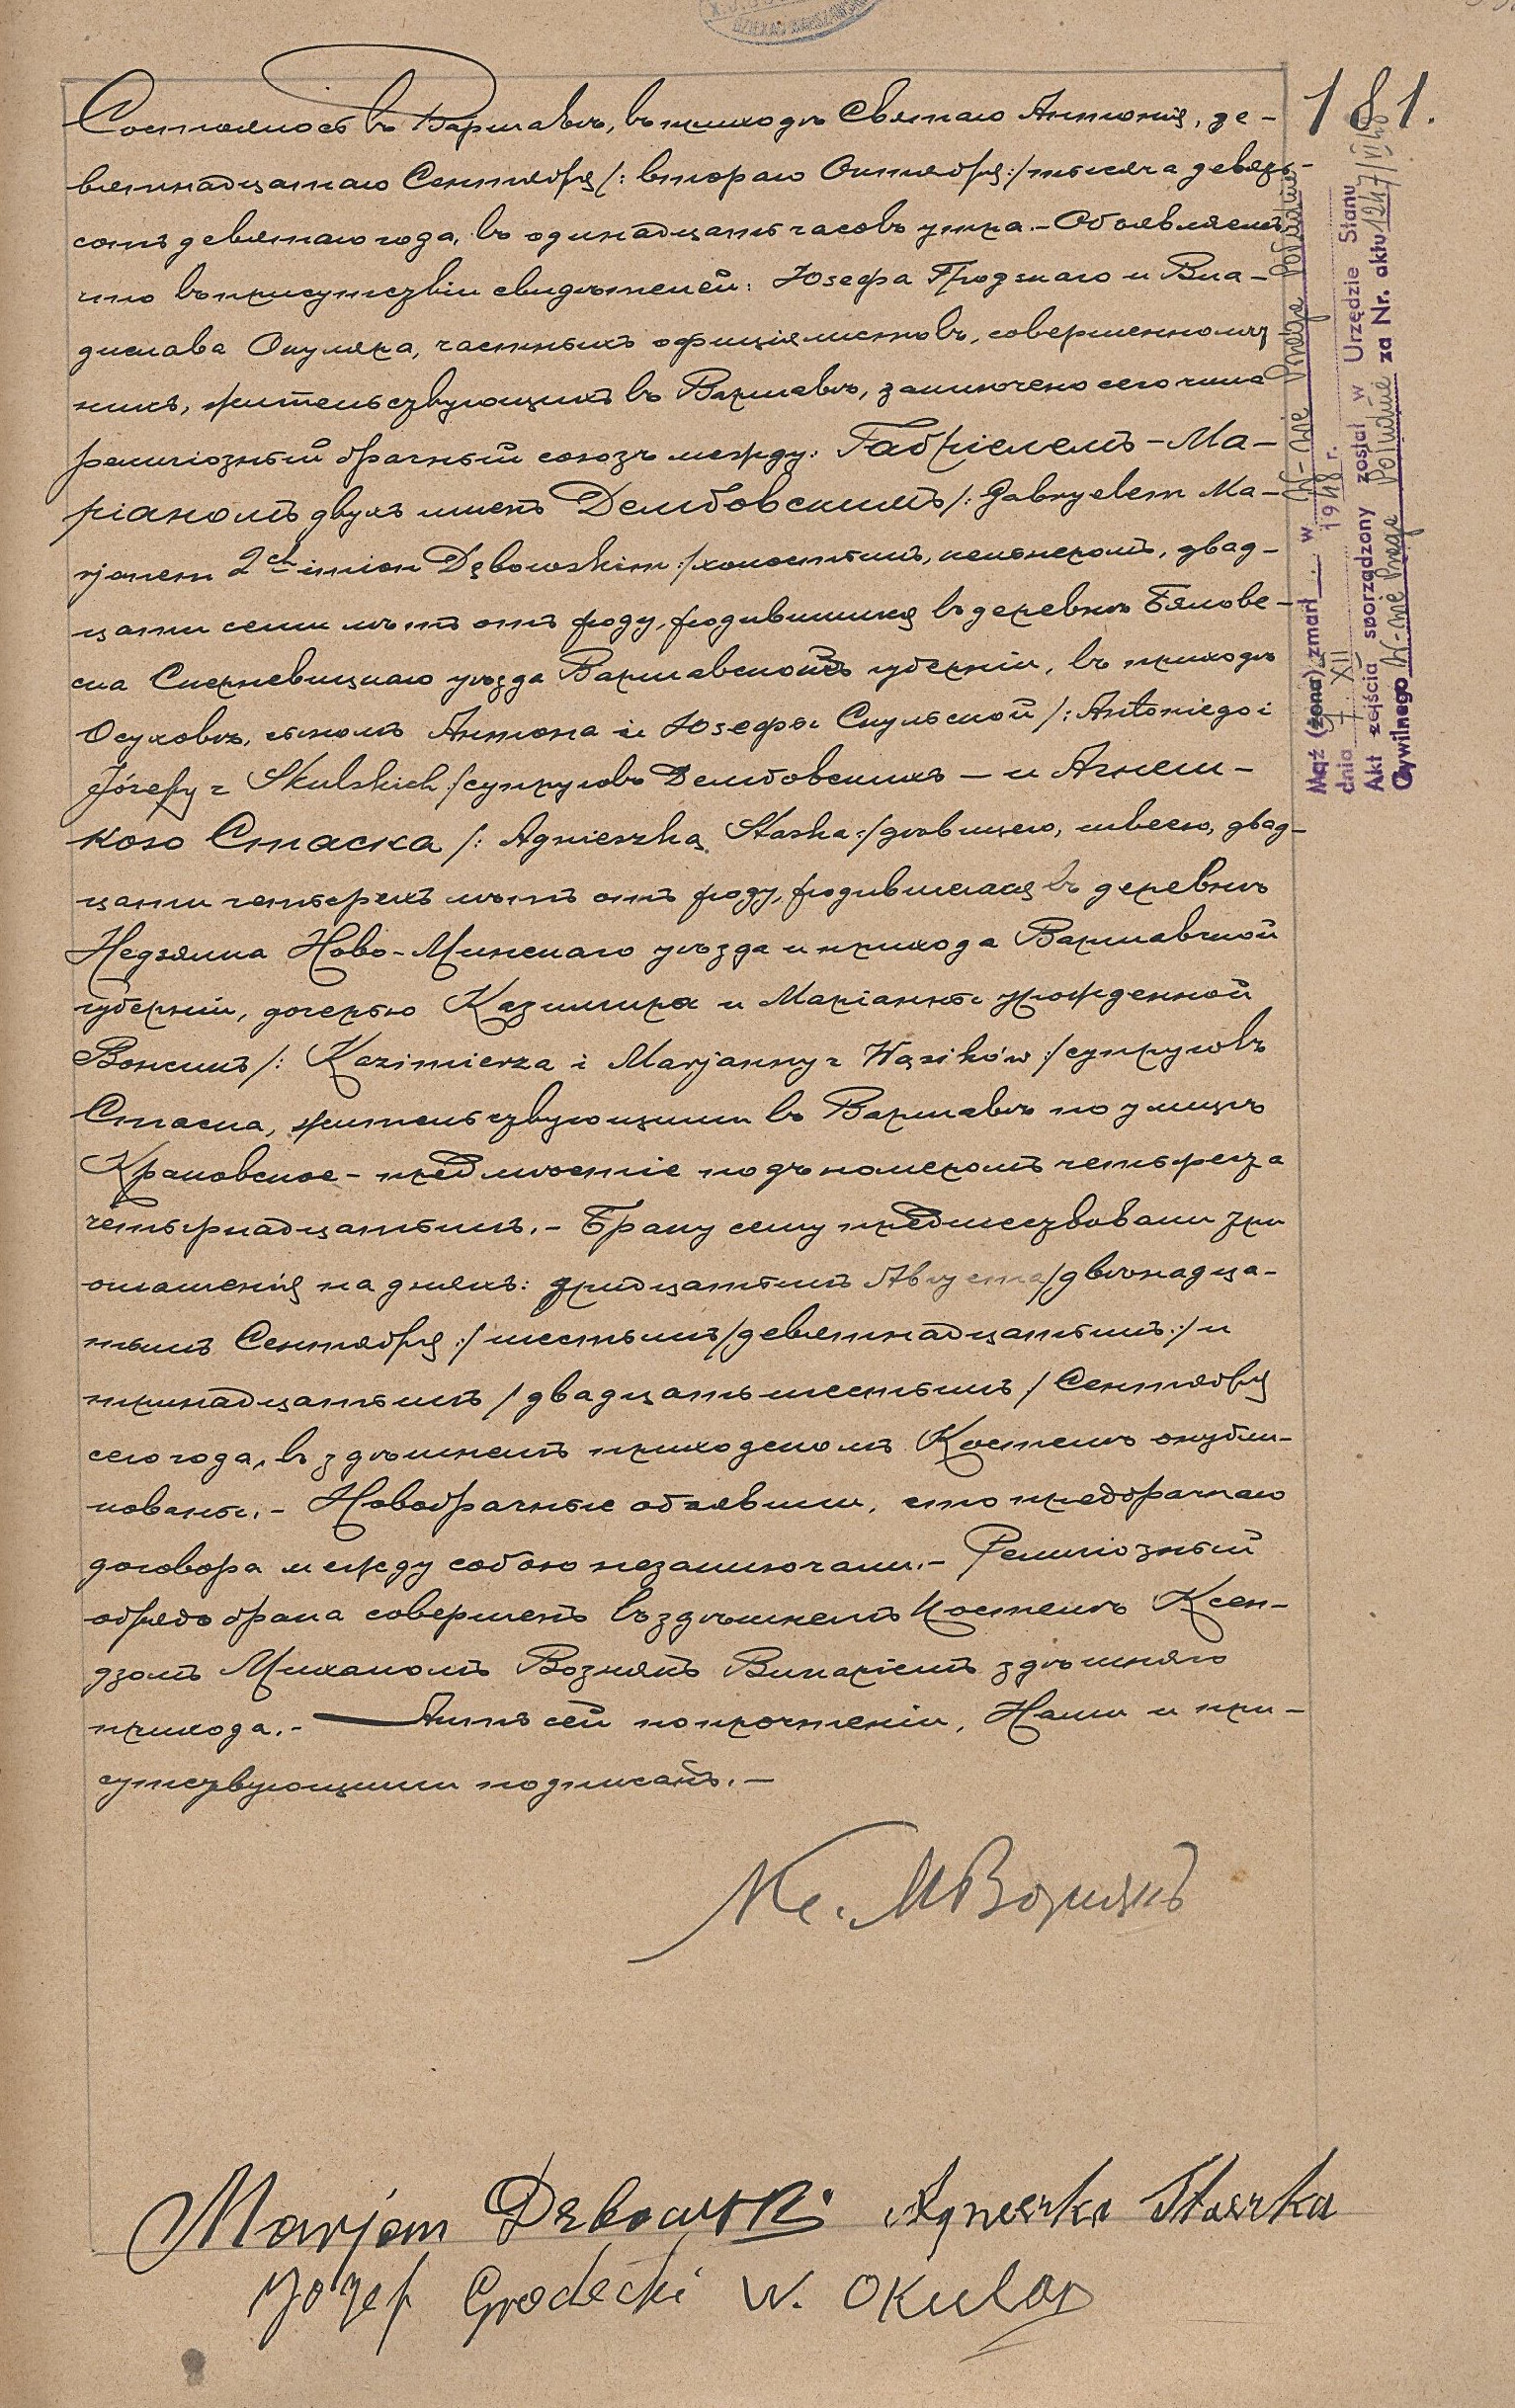 181.
Состоялось въ Варшавѣ, въ приходѣ Святаго Антонія, де-
вятнадцатаго Сентября /: втораго Октября :/ тысяча девять-
сотъ девятаго года, въ одинадцать часовъ утра. – Объявляемъ
что въ присутствіи свидѣтелей: Юзефа Гродзкаго и Вла-
дислава Окуляра, частныхъ офиціялистовъ, совершеннолѣт
нихъ, жительствующихъ въ Варшавѣ, заключено сего числа
религіозный брачный союзъ между: Габріелемъ-Ма-
ріаномъ двухъ именъ Дембовскимъ /: Gabryelem Ma-
rjanem 2ch imion Dębowskim :/ холостымъ, кельнеромъ, двад-
цати семи лѣтъ отъ роду, родившимся въ деревнѣ Бялове-
ска Скерневицкаго уѣзда Варшавской губерніи, въ приходѣ
Осуховѣ, сыномъ Антона и Юзефы Скульской /: Antoniego i
Józefy z Skulskich :/ супруговъ Дембовскихъ – и Агнеш-
кою Стаска /: Agnieszką Staska :/ дѣвицею, швеею, двад-
цати четырехъ лѣтъ отъ роду, родившеюся въ деревнѣ
Недзялка Ново-Минскаго уѣзда и прихода Варшавской
губерніи, дочерью Казимира и Маріанны урожденной
Вонсикъ /: Kazimierza i Marjanny z Wąsików :/ супруговъ
Стаска, жительствующими въ Варшавѣ по улицѣ
Краковское-предмѣстіе подъ номеромъ четыреста
четырнадцатымъ. – Браку сему предшествовали три
оглашенія на дняхъ: тридцатымъ Августа / двѣнадца-
тымъ Сентября :/ шестымъ / девятнадцатымъ :/ и
тринадцатымъ / двадцать шестымъ / Сентября
сего года, въ здѣшнемъ приходскомъ Костелѣ опубли-
кованы. – Новобрачные объявили, что предбрачнаго
договора между собою незаключали. – Религіозный
обрядъ брака совершенъ въ здѣшнемъ Костелѣ Ксен-
дзомъ Михаломъ Вознякъ Викаріемъ здѣшняго
прихода. – Актъ сей по прочтеніи, Нами и при-
сутствующими подписанъ. –
Кс. М Вознякъ
Marjan Dębowski Agneszka Staszka
Józef Grodecki W. Okular
Mąż (żona) zmarł w W-wie Praga Południe
dnia 7. XII 1948 r.
Akt zejścia sporządzony został w Urzędzie Stanu
Cywilnego W-wie Praga Południe za Nr. aktu 1247/VI/48